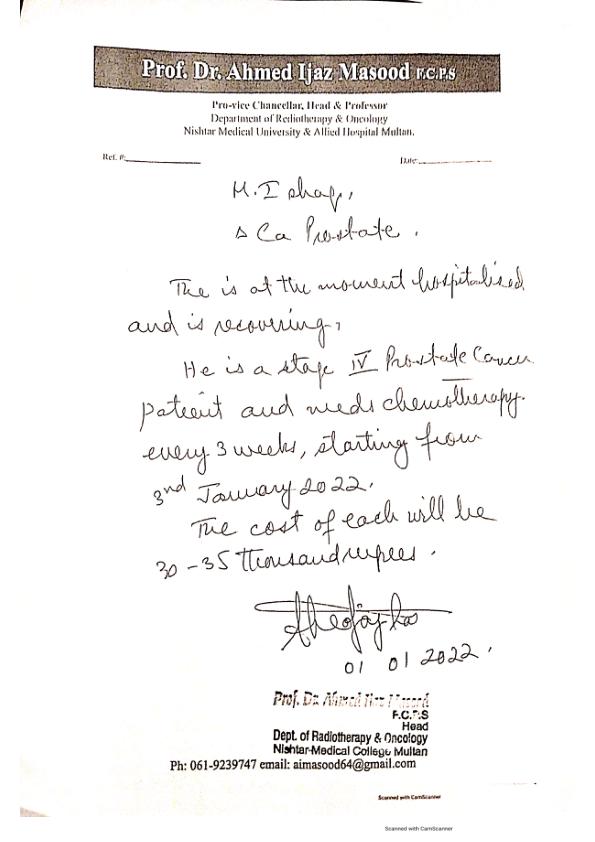 Prof. Dr. Ahmed Ijaz Masood F.C.P.S
Pro-vice Chancellar, Head & Professor
Department of Rediotherapy & Oncology
Nishtar Medical University & Allied Hospital Multan.
Ref. #: Date:
M. Ishaq,
Δ Ca Prostate.
The is at the moment hospitalised
and is recovering,
He is a stage IV Prostate Cancer
patient and needs chemotherapy.
every 3 weeks, starting from
3nd January 2022.
The cost of each will be
30-35 thousand rupees.
01 01 2022.
Prof. Dr. Ahmed Ijaz Masood
F.C.P.S
Head
Dept. of Radiotherapy & Oncology
Nishtar-Medical College Multan
Ph: 061-9239747 email: aimasood64@gmail.com
Scanned with CamScanner
Scanned with CamScanner